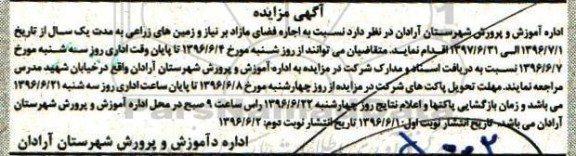 آگهی مزایده
اداره آموزش و پرورش شهرستان آرادان در نظر دارد نسبت به اجاره فضای مازاد بر نیاز و زمین های زراعی به مدت یک سال از تاریخ
۱۳۹۶/۷/۱ الی ۱۳۹۷/۶/۳۱ اقدام نماید. متقاضیان می توانند از روز شنبه مورخ ۱۳۹۶/۶/۴ تا پایان وقت اداری روز سه شنبه مورخ
۱۳۹۶/۶/۷ نسبت به دریافت اسناد و مدارک شرکت در مزایده به اداره آموزش و پرورش شهرستان آرادان واقع در خیابان شهید مدرس
مراجعه نمایند. مهلت تحویل پاکت های شرکت در مزایده از روز چهارشنبه مورخ ۱۳۹۶/۶/۸ تا پایان ساعت اداری روز سه شنبه ۱۳۹۶/۶/۲۱
می باشد و زمان بازگشایی پاکتها و اعلام نتایج روز چهارشنبه ۱۳۹۶/۶/۲۲ راس ساعت ۹ صبح در محل اداره آموزش و پرورش شهرستان
آرادان می باشد. تاریخ انتشار نوبت اول: ۱۳۹۶/۶/۱ تاریخ انتشار نوبت دوم: ۱۳۹۶/۶/۲
اداره آموزش و پرورش شهرستان آرادان